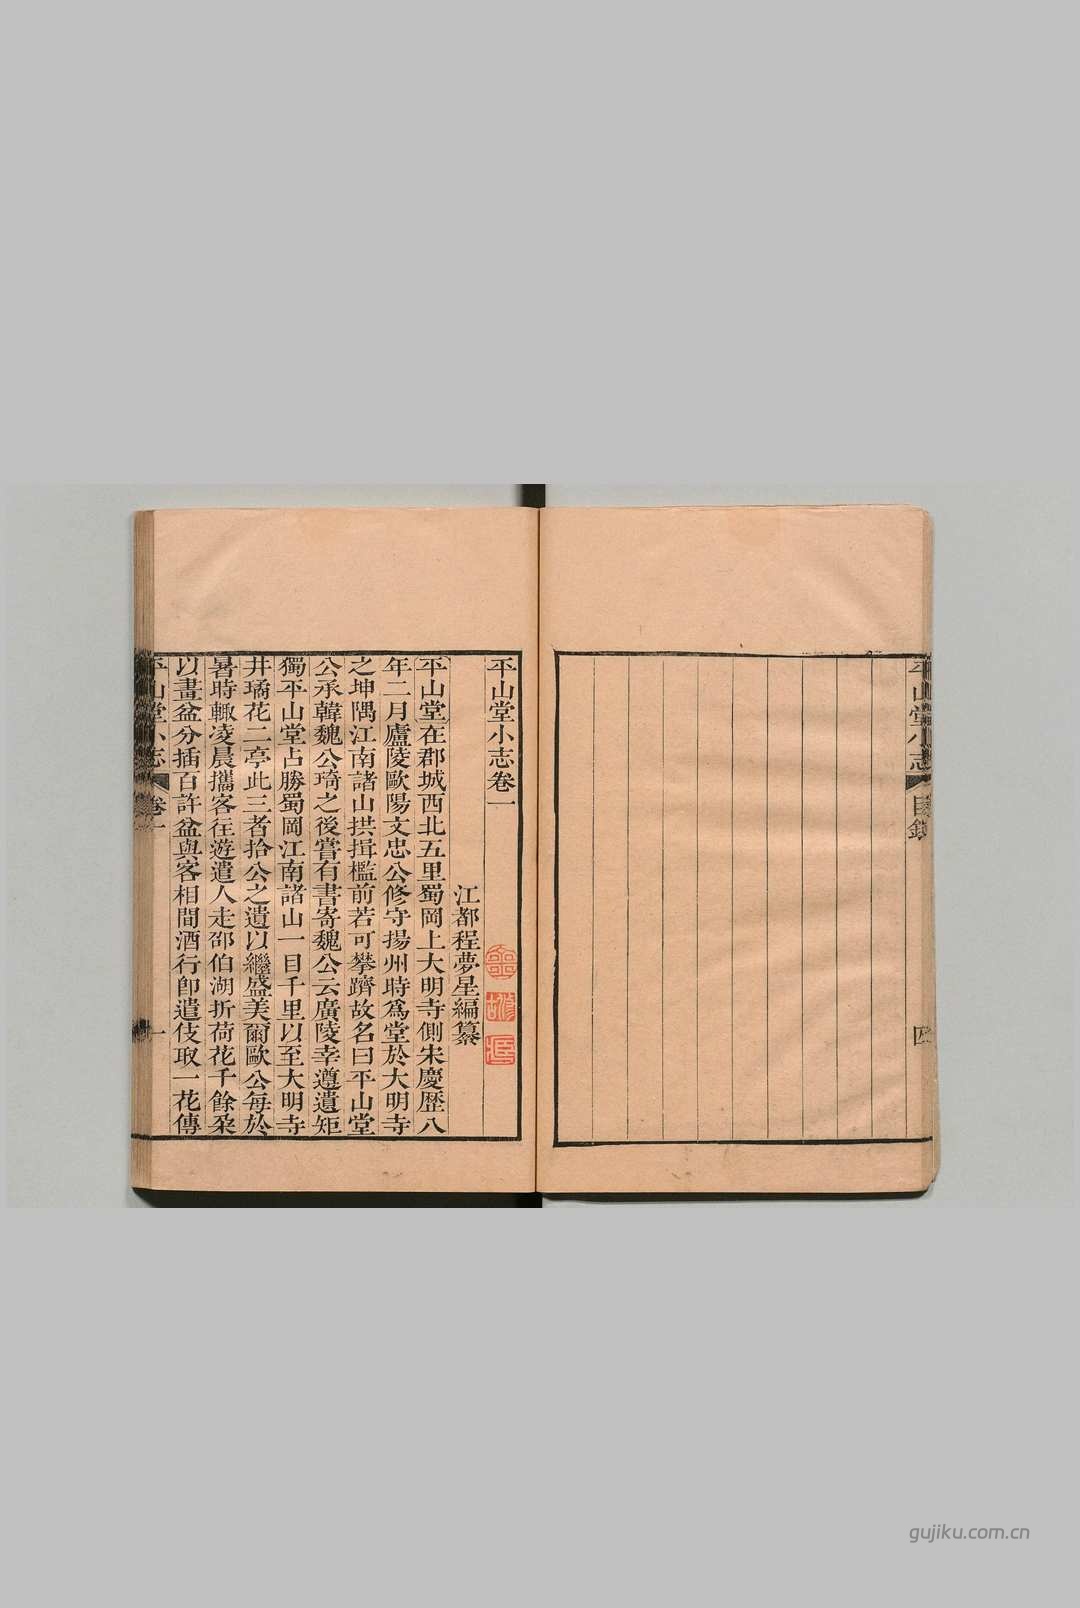 平山堂小志
目錄
四
平山堂小志卷一
江都程夢星編纂
平山堂在郡城西北五里蜀岡上大明寺側宋慶歷八
年二月廬陵歐陽文忠公修守揚州時爲堂於大明寺
之坤隅江南諸山拱揖檻前若可攀躋故名曰平山堂
公承韓魏公琦之後嘗有書寄魏公云廣陵幸遵遺矩
獨平山堂占勝蜀岡江南諸山一目千里以至大明寺
井瓊花二亭此三者拾公之遺以繼盛美爾歐公每於
暑時輙凌晨攜客往遊遣人走邵伯湖折荷花千餘朶
以畫盆分插百許盆與客相間酒行即遣伎取一花傳
平山堂小志
卷一
一
gujiku.com.cn